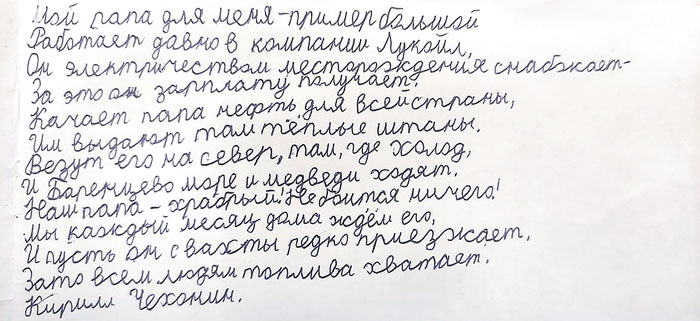 Мой папа для меня - пример большой
Работает давно в компании Лукойл,
Он электричеством месторождения снабжает -
За это он зарплату получает.
Качает папа нефть для всей страны,
Им выдают там тёплые штаны.
Везут его на север, там, где холод,
И Баренцево море и медведи ходят.
Наш папа - храбрый! Не боится ничего!
Мы каждый месяц дома ждём его,
И пусть он с вахты редко приезжает,
Зато всем людям топлива хватает.
Кирилл Чехонин.